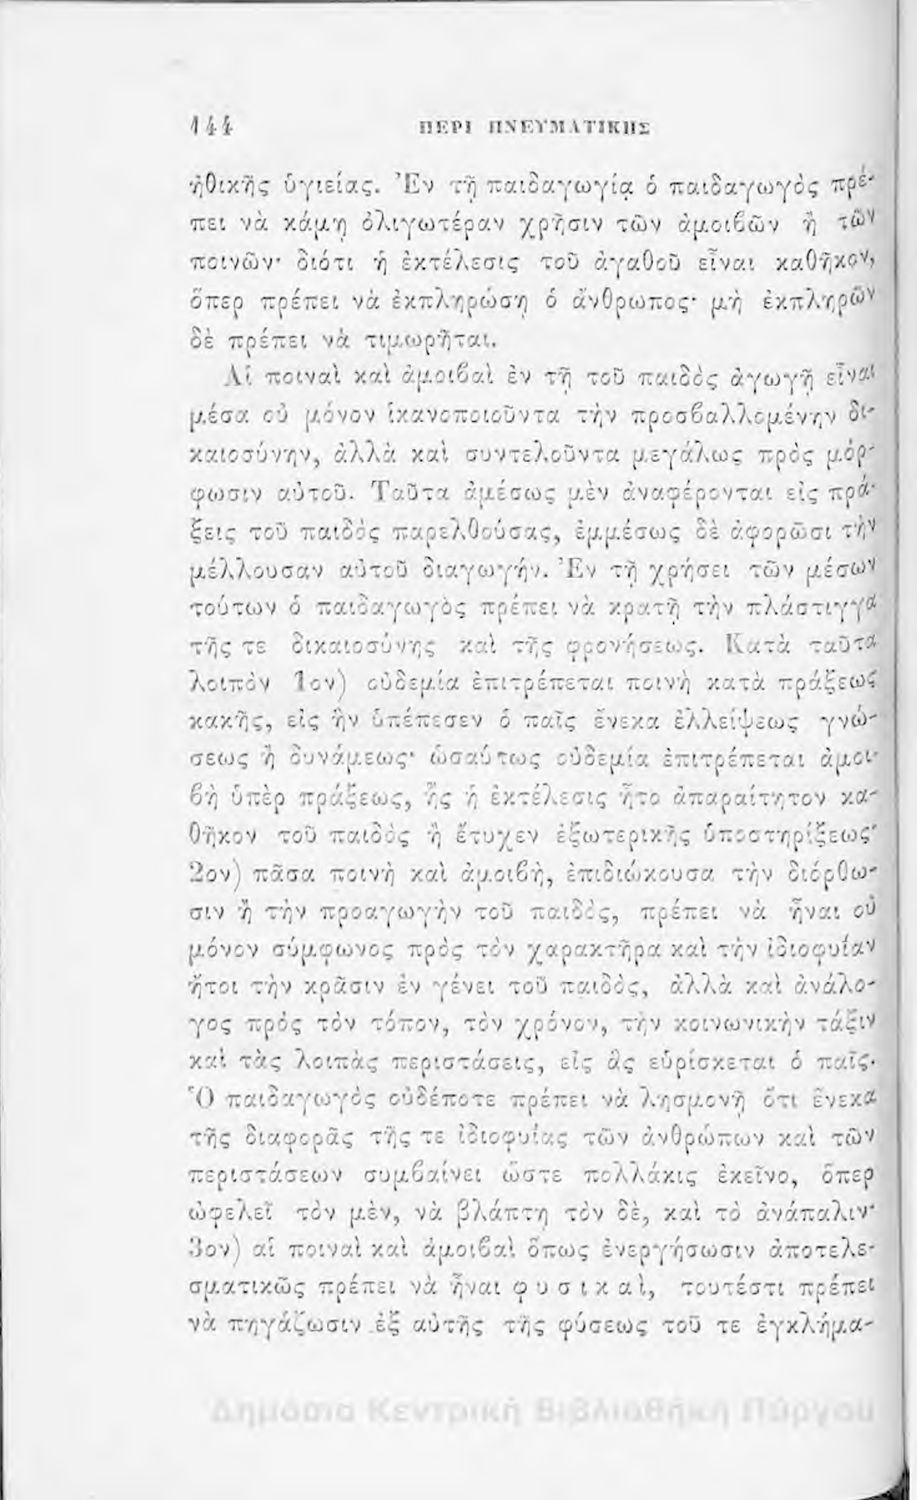 144 ΠΕΡΙ ΠΝΕΥΜΑΤΙΚΗΣ
ἠθικῆς ὑγιείας. Ἐν τῇ παιδαγωγίᾳ ὁ παιδαγωγὸς πρέ-
πει νὰ κάμῃ ὀλιγωτέραν χρῆσιν τῶν ἀμοιβῶν ἢ τῶν
ποινῶν· διότι ἡ ἐκτέλεσις τοῦ ἀγαθοῦ εἶναι καθῆκον,
ὅπερ πρέπει νὰ ἐκπληρώσῃ ὁ ἄνθρωπος· μὴ ἐκπληρῶν
δὲ πρέπει νὰ τιμωρῆται.
Αἱ ποιναὶ καὶ ἀμοιβαὶ ἐν τῇ τοῦ παιδὸς ἀγωγῇ εἶναι
μέσα οὐ μόνον ἱκανοποιοῦντα τὴν προσβαλλομένην δι-
καιοσύνην, ἀλλὰ καὶ συντελοῦντα μεγάλως πρὸς μόρ-
φωσιν αὐτοῦ. Ταῦτα ἀμέσως μὲν ἀναφέρονται εἰς πρά-
ξεις τοῦ παιδὸς παρελθούσας, ἐμμέσως δὲ ἀφορῶσι τὴν
μέλλουσαν αὐτοῦ διαγωγήν. Ἐν τῇ χρήσει τῶν μέσων
τούτων ὁ παιδαγωγὸς πρέπει νὰ κρατῇ τὴν πλάστιγγα
τῆς τε δικαιοσύνης καὶ τῆς φρονήσεως. Κατὰ ταῦτα
λοιπὸν 1ον) οὐδεμία ἐπιτρέπεται ποινὴ κατὰ πράξεως
κακῆς, εἰς ἣν ὑπέπεσεν ὁ παῖς ἕνεκα ἐλλείψεως γνώ-
σεως ἢ δυνάμεως· ὡσαύτως οὐδεμία ἐπιτρέπεται ἀμοι-
βὴ ὑπὲρ πράξεως, ἧς ἡ ἐκτέλεσις ἦτο ἀπαραίτητον κα-
θῆκον τοῦ παιδὸς ἢ ἔτυχεν ἐξωτερικῆς ὑποστηρίξεως·
2ον) πᾶσα ποινὴ καὶ ἀμοιβὴ, ἐπιδιώκουσα τὴν διόρθω-
σιν ἢ τὴν προαγωγὴν τοῦ παιδὸς, πρέπει νὰ ἦναι οὐ
μόνον σύμφωνος πρὸς τὸν χαρακτῆρα καὶ τὴν ἰδιοφυΐαν
ἤτοι τὴν κρᾶσιν ἐν γένει τοῦ παιδὸς, ἀλλὰ καὶ ἀνάλο-
γος πρὸς τὸν τόπον, τὸν χρόνον, τὴν κοινωνικὴν τάξιν
καὶ τὰς λοιπὰς περιστάσεις, εἰς ἃς εὑρίσκεται ὁ παῖς.
Ὁ παιδαγωγὸς οὐδέποτε πρέπει νὰ λησμονῇ ὅτι ἕνεκα
τῆς διαφορᾶς τῆς τε ἰδιοφυΐας τῶν ἀνθρώπων καὶ τῶν
περιστάσεων συμβαίνει ὥστε πολλάκις ἐκεῖνο, ὅπερ
ὠφελεῖ τὸν μὲν, νὰ βλάπτῃ τὸν δὲ, καὶ τὸ ἀνάπαλιν·
3ον) αἱ ποιναὶ καὶ ἀμοιβαὶ ὅπως ἐνεργήσωσιν ἀποτελε-
σματικῶς πρέπει νὰ ἦναι φυσικαὶ, τουτέστι πρέπει
νὰ πηγάζωσιν ἐξ αὐτῆς τῆς φύσεως τοῦ τε ἐγκλήμα-
Δημόσια Κεντρική Βιβλιοθήκη Πύργου